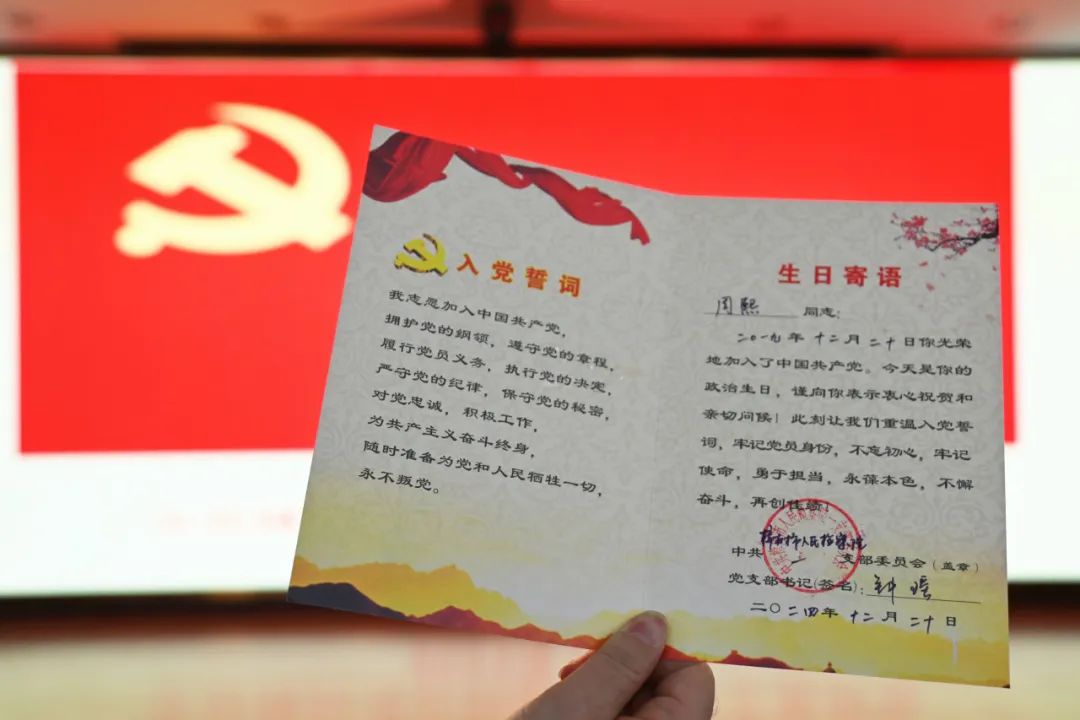 入党誓词
我志愿加入中国共产党，
拥护党的纲领，遵守党的章程，
履行党员义务，执行党的决定，
严守党的纪律，保守党的秘密，
对党忠诚，积极工作，
为共产主义奋斗终身，
随时准备为党和人民牺牲一切，
永不叛党。
生日寄语
周熙 同志：
二〇一九年十二月二十日你光荣
地加入了中国共产党。今天是你的
政治生日，谨向你表示衷心祝贺和
亲切问候！此刻让我们重温入党誓
词，牢记党员身份，不忘初心，牢记
使命，勇于担当，永葆本色，不懈
奋斗，再创佳绩！
市人民检察院
中共 支部委员会（盖章）
党支部书记(签名)：钟瑶
二〇二四年十二月二十日